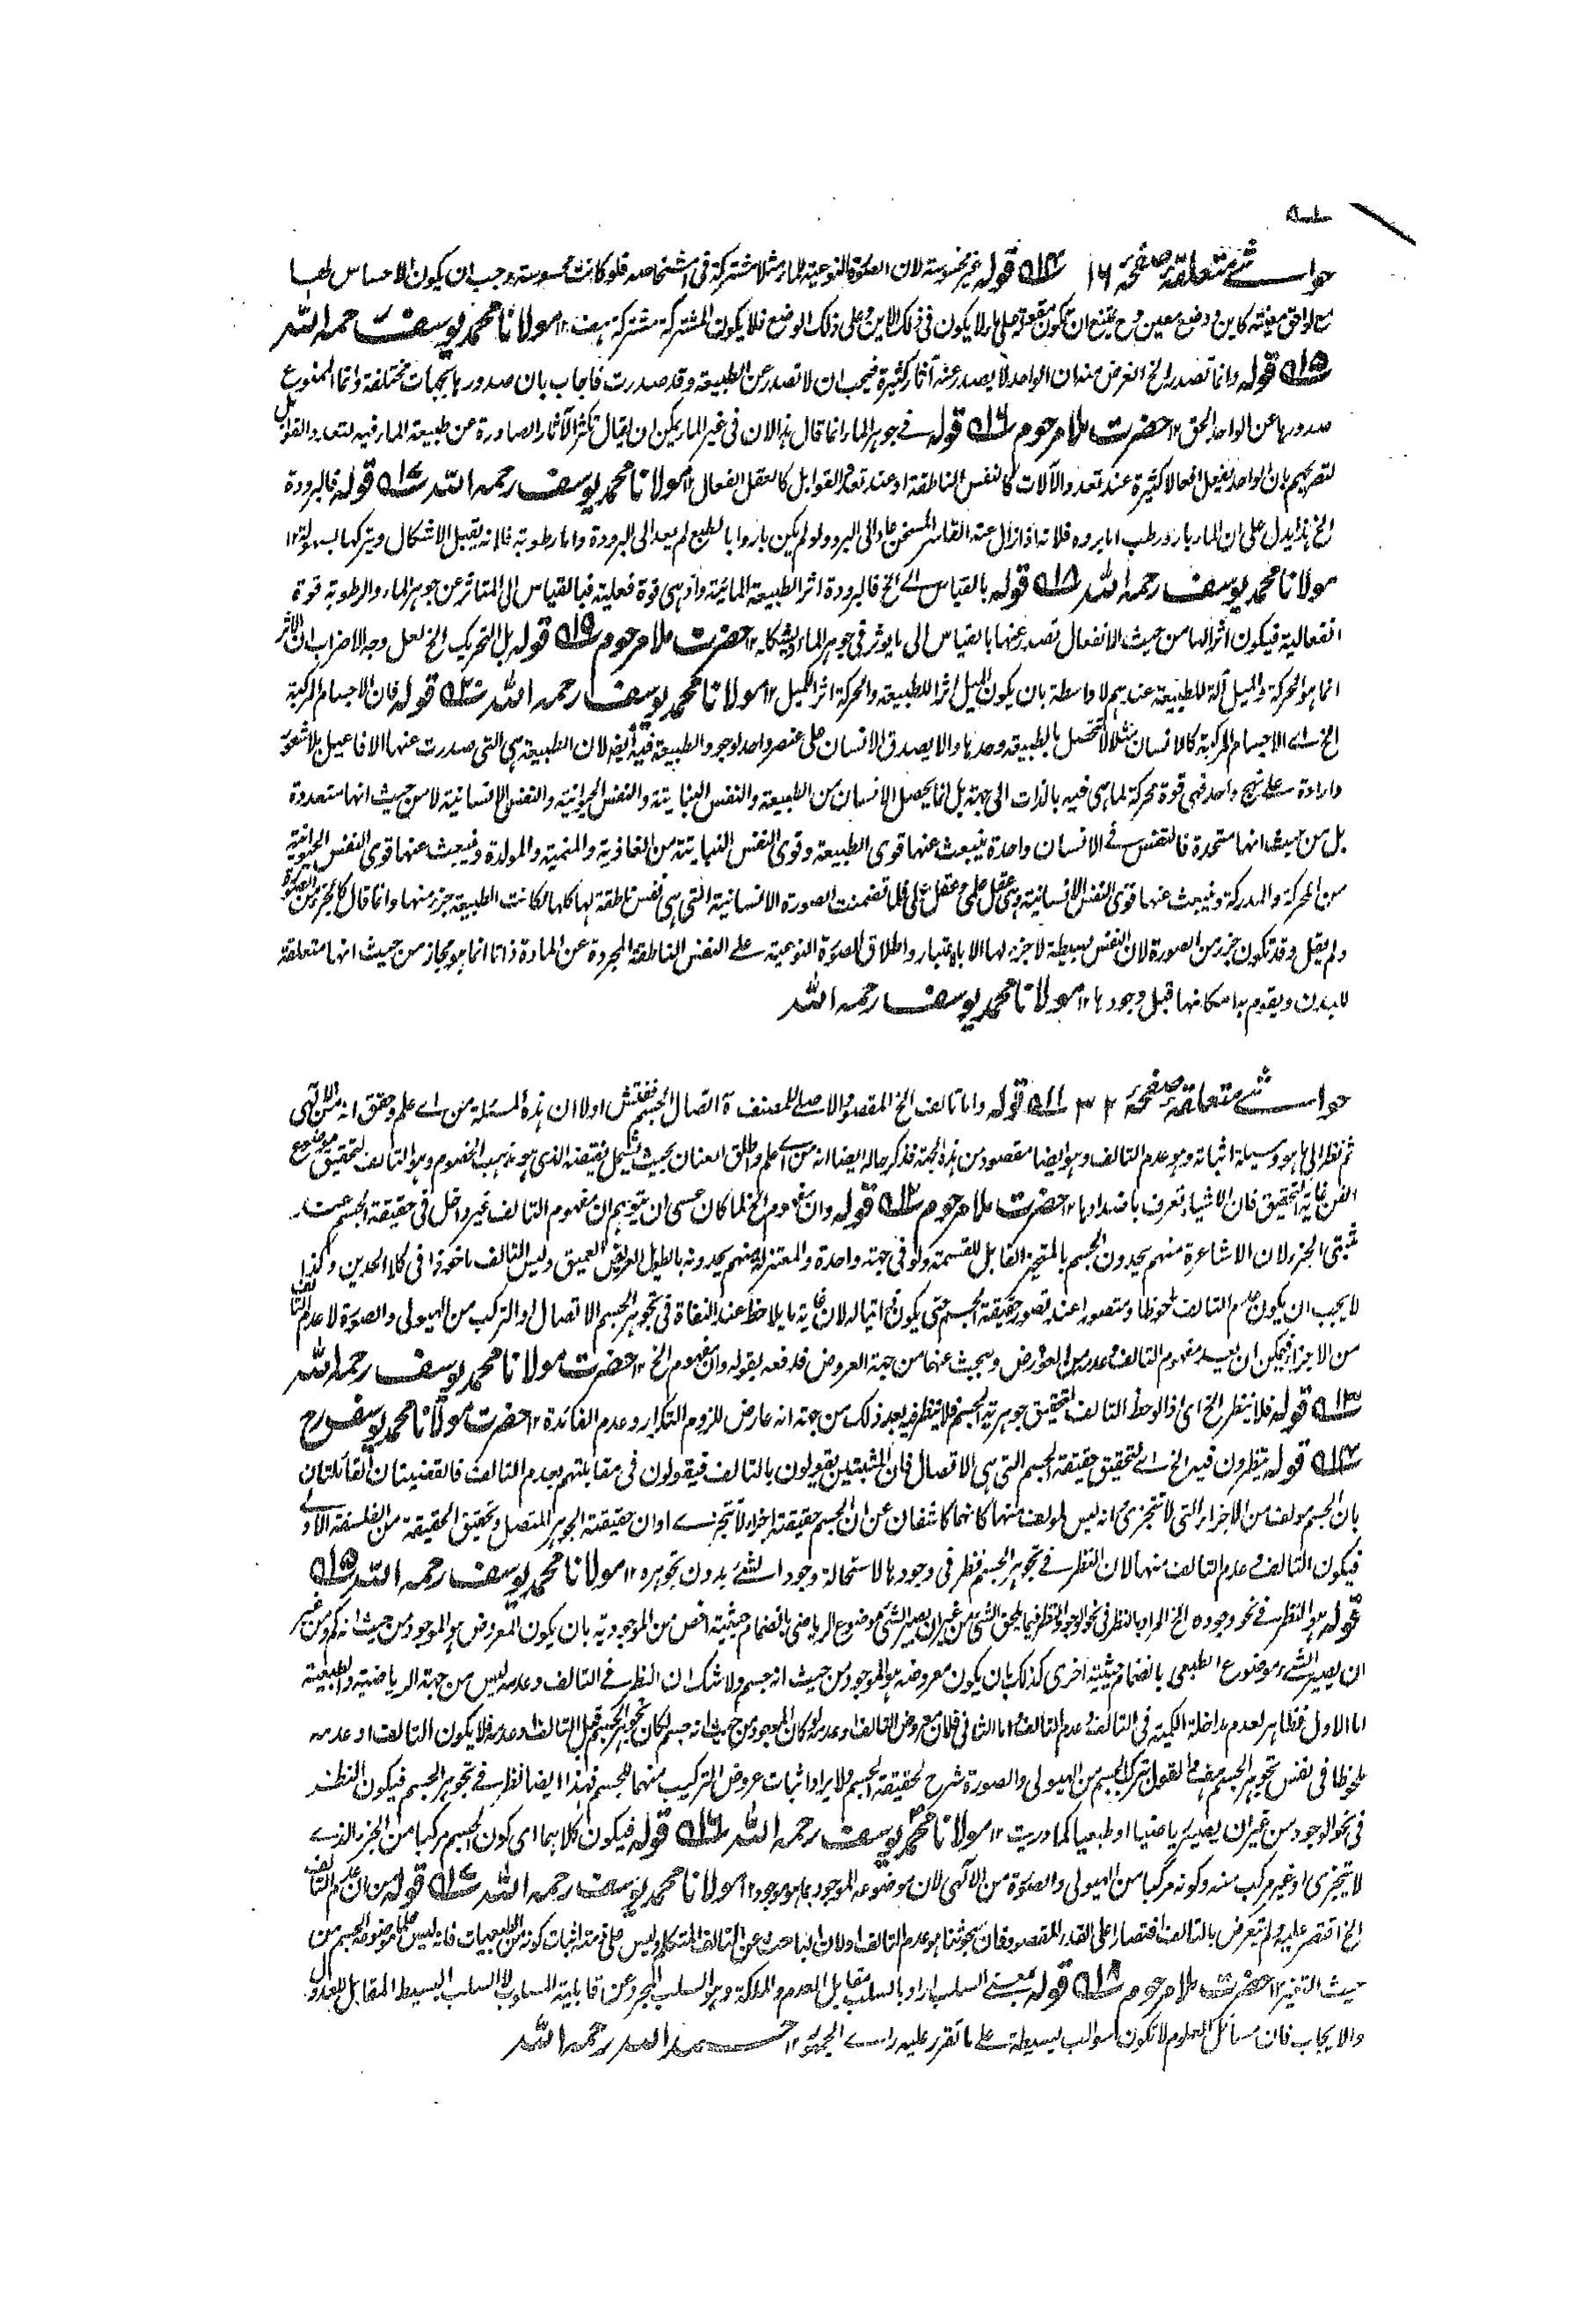 حواشے متعلقہ صفحہ ١٦ قولہ غیر محسوستہ لان الصورۃ النوعیۃ للماء مثلا مشترکۃ فی اشخاصہ فلو کانت محسوستہ وجب ان یکون الاحساس لہا
مع لواحق معینۃ کاین و وضع معین وح یمتنع ان تکون مقولۃ علی ما لا یکون فی ذلک الاین وعلی ذلک الوضع فلا یکون المشترکۃ مشترکۃ ہف ١٢ مولانا محمد یوسف رحمہ اللہ
قولہ وانما تصدر الخ الغرض منہ ان الواحد لا یصدر عنہ آثار کثیرۃ فیجب ان لا تصدر عن الطبیعۃ وقد صدرت فاجاب بان صدورہا بجہات مختلفۃ وانما الممنوع
صدورہا عن الواحد الحق ١٢ حضرت ملا مرحوم قولہ فے جوہر الماء انما قال ہذا لان فی غیر الماء یمکن ان یقال تکثر الآثار الصادرۃ عن طبیعۃ الماء فیہ لتعدد القوابل
لتصریحہم بان الواحد یفعل افعالا کثیرۃ عند تعدد الآلات کالنفس الناطقۃ او عند تعدد القوابل کالعقل الفعال ١٢ مولانا محمد یوسف رحمہ اللہ قولہ فالبرودۃ
الخ ہذا یدل علی ان الماء بارد رطب اما بردہ فلانہ اذا زال عنہ القاسر المسخن عاد الی البرد ولو لم یکن باردا بالطبع لم یعد الی البرودۃ واما رطوبتہ فلانہ یقبل الاشکال ویترکہا بسہولۃ ١٢
مولانا محمد یوسف رحمہ اللہ قولہ بالقیاس الے الخ فالبرودۃ اثر الطبیعۃ المائیۃ واذ ہی قوۃ فعلیۃ فبالقیاس الی المتاثر عن جوہر الماء والرطوبۃ قوۃ
انفعالیۃ فیکون اثرا لہا من حیث الانفعال تصدر عنہا بالقیاس الی ما یوثر فی جوہر الماء ١٢ حضرت ملا مرحوم قولہ بل التحریک الخ لعل وجہ الاضراب ان الاثر
انما ہو الحرکۃ والمیل آلۃ للطبیعۃ عندہم لا واسطۃ بان یکون المیل اثرا للطبیعۃ والحرکۃ اثرا للمیل ١٢ مولانا محمد یوسف رحمہ اللہ قولہ فان الاجسام المرکبۃ
الخ اے الاجسام المرکبۃ کالانسان مثلا لا تتحصل بالطبیعۃ وحدہا والا یصدق الانسان علی عنصر واحد لوجود الطبیعۃ فیہ ایضا لان الطبیعۃ ہی التی صدرت عنہا الافاعیل بلا شعور
وارادۃ علے نہج واحد فہی قوۃ محرکۃ لما ہی فیہ بالذات الی جہۃ بل انما یحصل الانسان من الطبیعۃ والنفس النباتیۃ والنفس الحیوانیۃ والنفس الانسانیۃ لا من حیث انہا متعددۃ
بل من حیث انہا متحدۃ فالنفس فے الانسان واحدۃ ینبعث عنہا قوی الطبیعۃ وقوی النفس النباتیۃ من الغاذیۃ والمنمیۃ والمولدۃ وینبعث عنہا قوی النفس الحیوانیۃ
من المحرکۃ والمدرکۃ وینبعث عنہا قوی النفس الانسانیۃ وہی عقل علمی وعقل عملی فلما تضمنت الصورۃ الانسانیۃ التی ہی نفس ناطقۃ لہا کلہا لکانت الطبیعۃ جزء منہا وانما قال کالجزء من الصورۃ
ولم یقل وقد تکون جزء من الصورۃ لان النفس بسیطۃ لا جزء لہا الا بالاعتبار واطلاق الصورۃ النوعیۃ علے النفس الناطقۃ المجردۃ عن المادۃ ذاتا انما ہو مجاز من حیث انہا متعلقۃ
للبدن ویقوم بہ امکانہا قبل وجودہا ١٢ مولانا محمد یوسف رحمہ اللہ
حواشے متعلقہ صفحہ ٣٢ قولہ واما تالف الخ المقصود الاصلے للمصنف اتصال الجسم ففتش اولا ان ہذہ المسئلۃ من اے علم وحقق انہ من الالٰہی
ثم نظر الی ما ہو وسیلۃ اثباتہ وہو عدم التالف وہو ایضا مقصود من ہذہ الجہۃ فذکر حالہ ایضا انہ من اے علم واطلق العنان بحیث یشمل نقیضہ الذی ہو مذہب الخصوم وہو التالف لتحقیق موضوع
الفن غایۃ التحقیق فان الاشیاء تعرف باضدادہا ١٢ حضرت ملا مرحوم قولہ وان مفہوم الخ لما کان عسی ان یتوہم ان مفہوم التالف غیر داخل فی حقیقۃ الجسم عند
مثبتی الجزء لان الاشاعرۃ منہم یحدون الجسم بالمتحیز القابل للقسمۃ ولو فی جہۃ واحدۃ والمعتزلۃ منہم یحدونہ بالطویل العریض العمیق ولیس التالف ماخوذا فی کلا الحدین وکذا
لا یجب ان یکون عدم التالف ملحوظا ومتصورا عند تصور حقیقۃ الجسم حتی یکون فی اتیالہ لان غایۃ ما یلاحظ عند النفاۃ فی تجوہر الجسم الاتصال والترکب من الہیولی والصورۃ لا عدم التالف
من الاجزاء فیمکن ان یعد مفہوم التالف وعدمہ من العوارض ویبحث عنہا من جہۃ العروض فدفعہ بقولہ وان مفہوم الخ ١٢ حضرت مولانا محمد یوسف رحمہ اللہ
قولہ فلا ینظر الخ ای اذا لوحظ التالف لتحقیق جوہریۃ الجسم فلا ینظر فیہ بعد ذلک من جہۃ انہ عارض للزوم التکرار وعدم الفائدۃ ١٢ حضرت مولانا محمد یوسف رح
قولہ ینظرون فیہ الخ اے لتحقیق حقیقۃ الجسم التی ہی الاتصال فان المثبتین یقولون بالتالف فیقولون فی مقابلتہم بعدم التالف فالقضیتان القائلتان
بان الجسم مولف من الاجزاء التی لا تتجزی او انہ لیس لمولف منہا کانہما کاشفان عن ان الجسم حقیقتہ اجزاء لا تتجزے او ان حقیقتہ الجوہر المتصل وتحقیق الحقیقۃ من الفلسفۃ الاولے
فیکون التالف وعدم التالف منہا لان النظر فے تجوہر الجسم نظر فی وجودہا لاستحالۃ وجود الشئے بدون تجوہرہ ١٢ مولانا محمد یوسف رحمہ اللہ
قولہ ہو النظر فے نحو وجودہ الخ المراد بالنظر فی نحو الوجود النظر فیما یلحق الشئ من غیر ان یصیر الشئ موضوع الریاضی بانضمام حیثیۃ اخص من الموجودیۃ بان یکون المعروض ہو الموجود من حیث انہ کم ومن غیر
ان یصیر الشئ موضوع الطبعی بانضمام حیثیۃ اخری کذلک بان یکون معروضہ ہو الموجود من حیث انہ جسم ولا شک ان النظر فے التالف وعدمہ لیس من جہۃ الریاضیۃ والطبیعیۃ
اما الاول فظاہر لعدم مداخلۃ الکمیۃ فی التالف وعدم التالف واما الثانی فلان معروض التالف وعدمہ لو کان الموجود من حیث انہ جسم لکان تجوہر الجسم قبل التالف وعدمہ فلا یکون التالف او عدمہ
ملحوظا فی نفس تجوہر الجسم ہف والقول بترکب الجسم من الہیولی والصورۃ شرح لحقیقۃ الجسم ولا یراد اثبات عروض الترکیب منہما للجسم فہذا ایضا نظر فے تجوہر الجسم فیکون النظر
فی نحو الوجود من غیر ان یصیر ریاضیا او طبعیا کما دریت ١٢ مولانا محمد یوسف رحمہ اللہ قولہ فیکون کلاہما ای کون الجسم مرکبا من الجزء الذے
لا یتجزی او غیر مرکب منہ وکونہ مرکبا من الہیولی والصورۃ من الآلٰہی لان موضوعہ الموجود بما ہو موجود ١٢ مولانا محمد یوسف رحمہ اللہ قولہ من ان عدم التالف
الخ اقتصر علیہ ولم یتعرض بالتالف اقتصارا علی القدر المقصود فان مبحوثنا ہو عدم التالف او لان الباحث عن التالف المتکلم ولیس علی ذمتہ اثبات کونہ من الطبیعیات فانہ لیس علما موضوعہ الجسم من
حیث التغیر ١٢ حضرت ملا مرحوم قولہ بمعنے السلب اراد بالسلب مقابل العدم والملکۃ وہو السلب المجرد عن قابلیۃ المسلوب لا السلب البسیط المقابل للعدول
والایجاب فان مسائل العلوم لا تکون سوالب بسیطۃ علے ما تقرر علیہ رائے الجمہور ١٢ حمد اللہ رحمہ اللہ